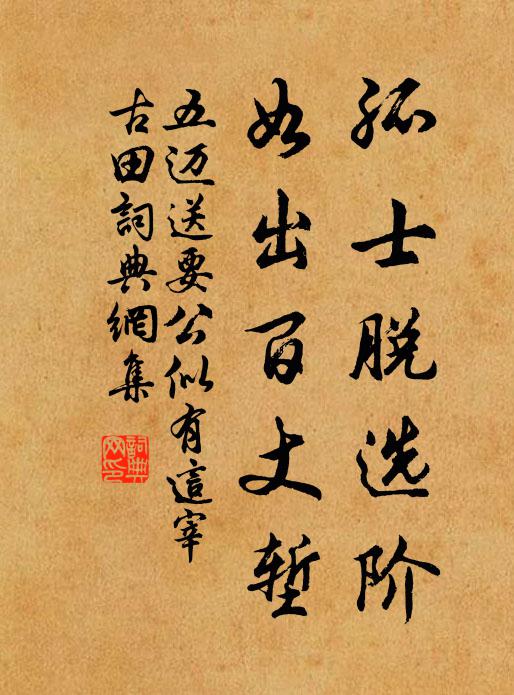 孤士脱选阶
如出百丈堑
五迈送要公似有這宰
古田詞典網集
詞典网印